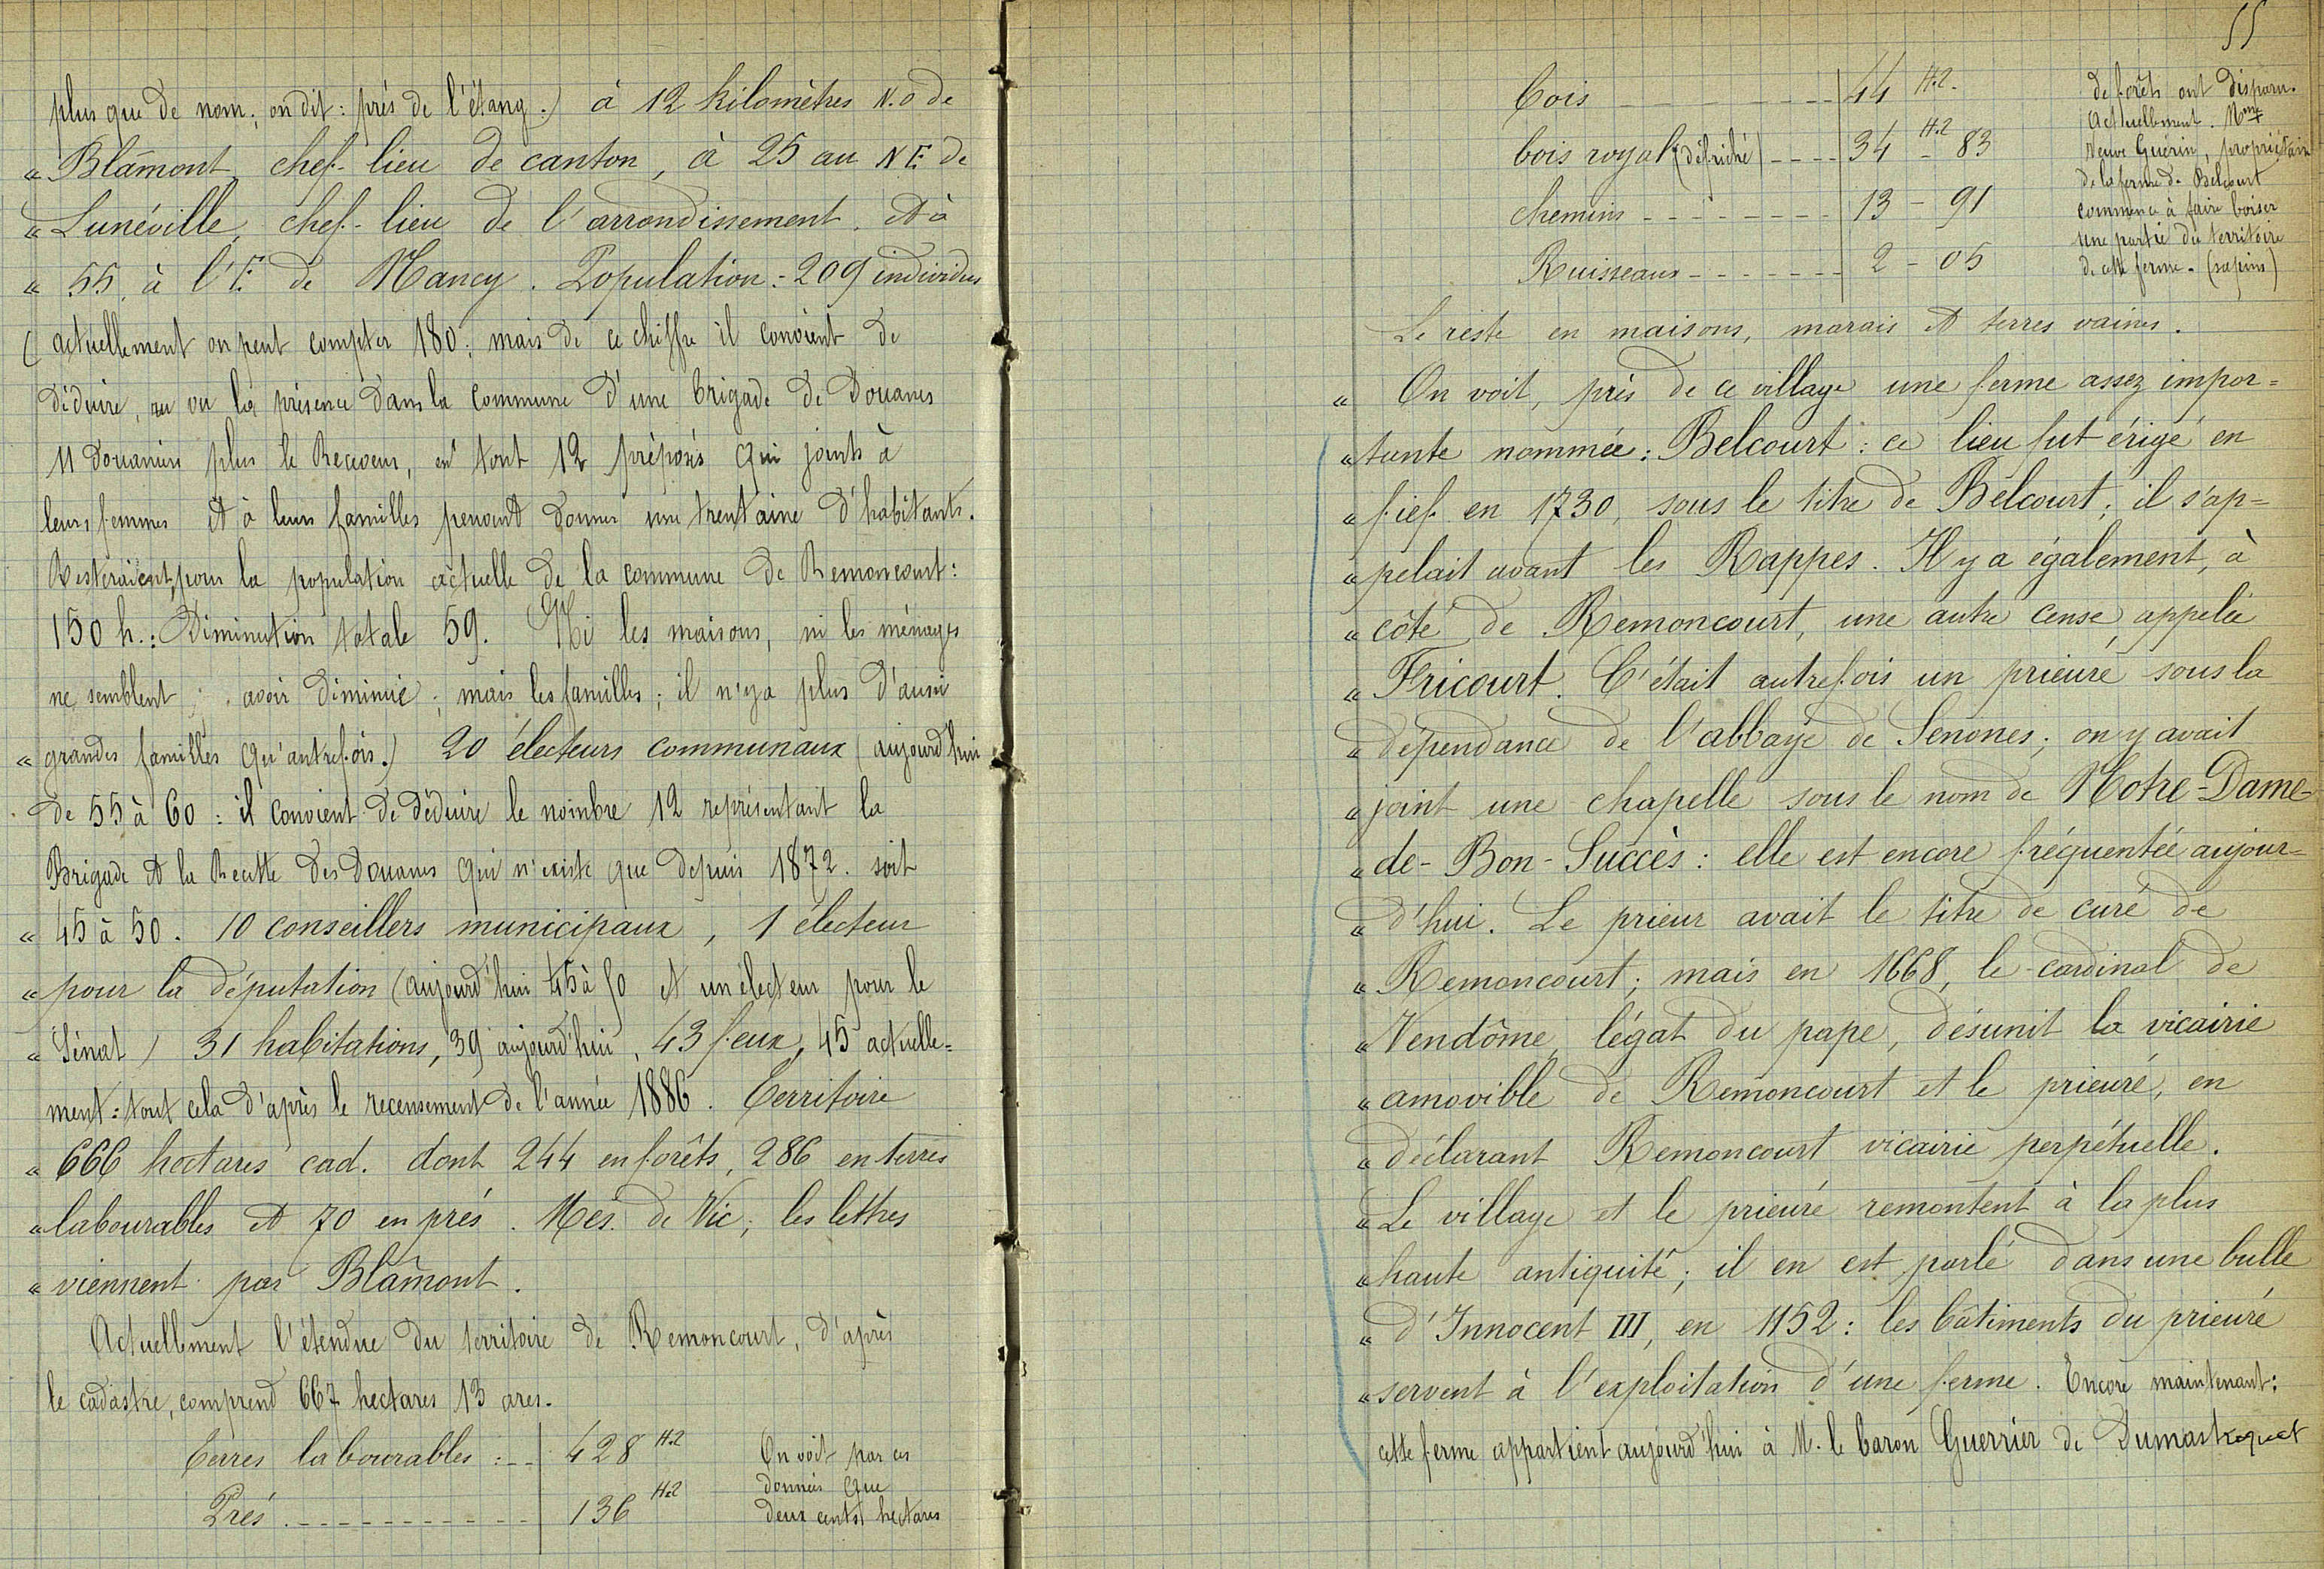 plus que de nom; on dit : prés de l'étang.) à 12 kilomètres N.O de
« Blâmont, chef-lieu de canton, à 25 au N E. de
« Lunéville, chef-lieu de l'arrondissement. et à
« 55, à l'E. de Nancy. Population : 209 individus
(actuellement on peut compter 180 ; mais de ce chiffre il convient de
déduire, vu la présence dans la commune d'une brigade de Douanes
11 douaniers plus le Receveur, en tout 12 préposés qui joints à
leurs femmes et à leurs familles peuvent donner une trentaine d'habitants.
Resteraient, pour la population actuelle de la commune de Remoncourt :
150 h. : Diminution totale 59. Ni les maisons, ni les ménages
ne semblent avoir diminué ; mais les familles ; il n'y a plus d'aussi
« grandes familles qu'autrefois.) 20 électeurs communaux (aujourd'hui
de 55 à 60 : il convient de déduire le nombre 12 représentant la
Brigade et la Recette des Douanes qui n'existe que depuis 1872. soit
« 45 à 50. 10 conseillers municipaux, 1 électeur
« pour la députation (aujourd'hui 45 à 50 et un électeur pour le
« Sénat) 31 habitations, 39 aujourd'hui, 43 feux, 45 actuelle=
ment : tout cela d'après le recensement de l'année 1886. Territoire
« 666 hectares cad. dont 244 en forêts, 286 en terres
« labourables et 70 en prés. Mes. de Vic ; les lettres
« viennent par Blâmont.
Actuellement l'étendue du territoire de Remoncourt, d'après
le cadastre, comprend 667 hectares 13 ares.
Terres labourables : -- 428 H.2 On voit par ces
données que
Prés . ----------- 136 H.2 deux cents hectares
55
bois --------- 44 H.2. de forêts ont disparu.
Actuellement. Mme
bois royal (défriché) ---- 34 H.2 - 83 Veuve Guérin, propriétaire
de la ferme de Belcourt
chemins -------- 13 - 91 commence à faire boiser
une partie du territoire
Ruisseaux ------- 2 - 05 de cette ferme. (sapins)
Le reste en maisons, marais et terres vaines.
« On voit, près de ce village une ferme assez impor=
« tante nommée : Belcourt : ce lieu fut érigé en
« fief en 1730, sous le titre de Belcourt ; il s'ap=
« pelait avant les Rappes. Il y a également, à
« côté de Remoncourt, une autre cense, appelée
« Fricourt. C'était autrefois un prieuré sous la
« dépendance de l'abbaye de Senones ; on y avait
« joint une chapelle sous le nom de Notre-Dame-
« de-Bon-Succès : elle est encore fréquentée aujour=
« d'hui. Le prieur avait le titre de curé de
« Remoncourt ; mais en 1668, le cardinal de
« Vendôme, légat du pape, désunit la vicairie
« amovible de Remoncourt et le prieuré, en
« déclarant Remoncourt vicairie perpétuelle.
« Le village et le prieuré remontent à la plus
« haute antiquité ; il en est parlé dans une bulle
« d'Innocent III, en 1152 : les bâtiments du prieuré
« servent à l'exploitation d'une ferme. Encore maintenant :
cette ferme appartient aujourd'hui à M. le baron Guerrier de Dumast